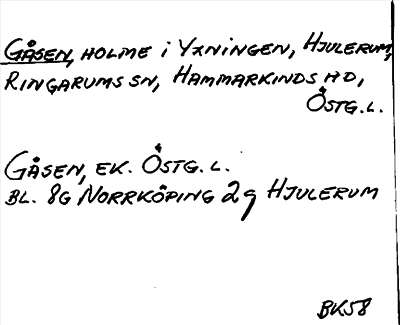 GÅSEN, HOLME I YXNINGEN, HJULERUM,
RINGARUMS SN, HAMMARKINDS HD,
ÖSTG.L.
GÅSEN, EK. ÖSTG.L.
BL. 8G NORRKÖPING 2g HJULERUM
BK58